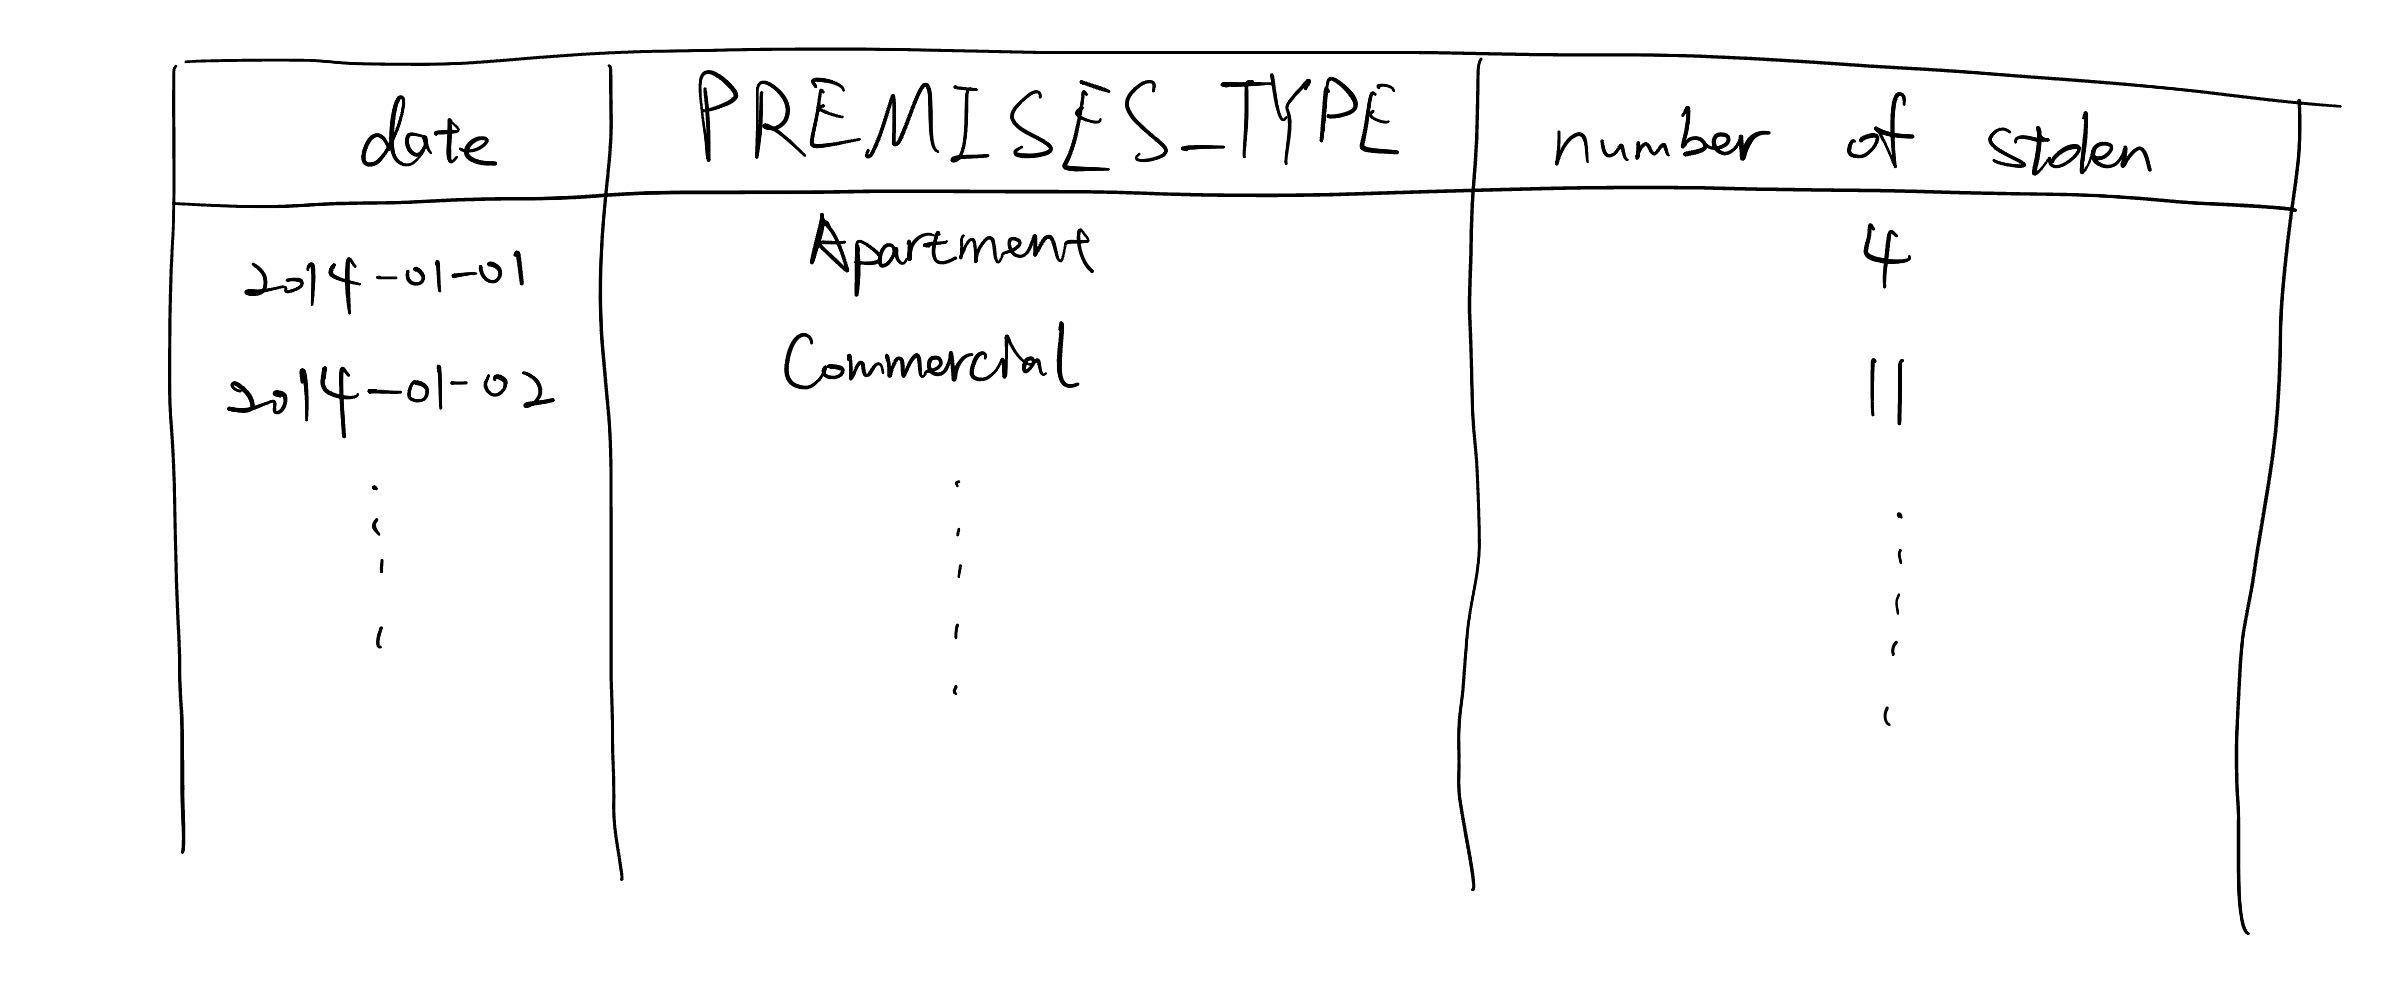 date PREMISES_TYPE number of stolen
2014-01-01 Apartment 4
2014-01-02 Commercial 11